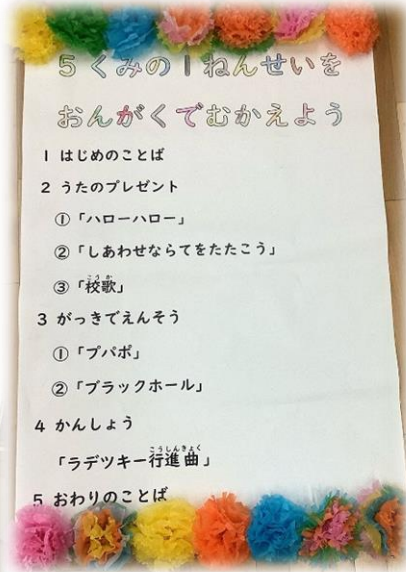 5くみの1ねんせいを
おんがくでむかえよう
1 はじめのことば
2 うたのプレゼント
①「ハローハロー」
②「しあわせならてをたたこう」
③「校歌」
3 がっきでえんそう
①「プパポ」
②「ブラックホール」
4 かんしょう
「ラデツキー行進曲」
5 おわりのことば